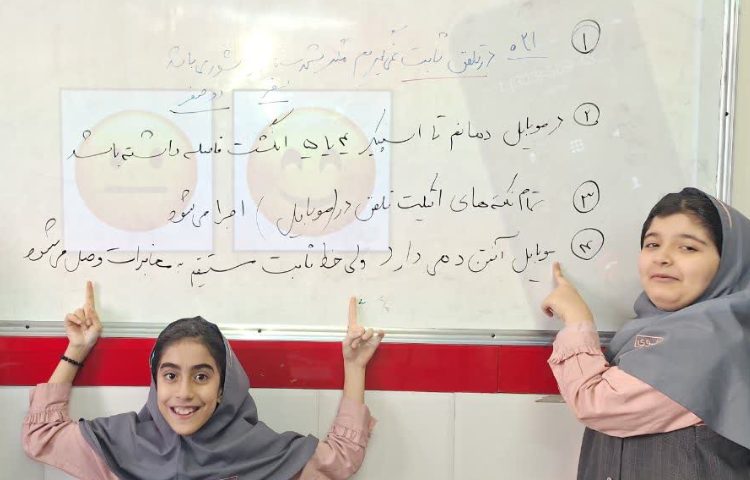 ① ۰۲۱ در تلفن ثابت نمی‌گیریم مگر شوری باشد
صفر دو صفر
② در موبایل دهانم تا اسپیکر ۴ یا ۵ انگشت فاصله داشته باشد
③ تمام نکته‌های اتیکت تلفن در (موبایل) اجرا می‌شود
④ موبایل آنتن دهی دارد ولی خط ثابت مستقیم به مخابرات وصل می‌شود